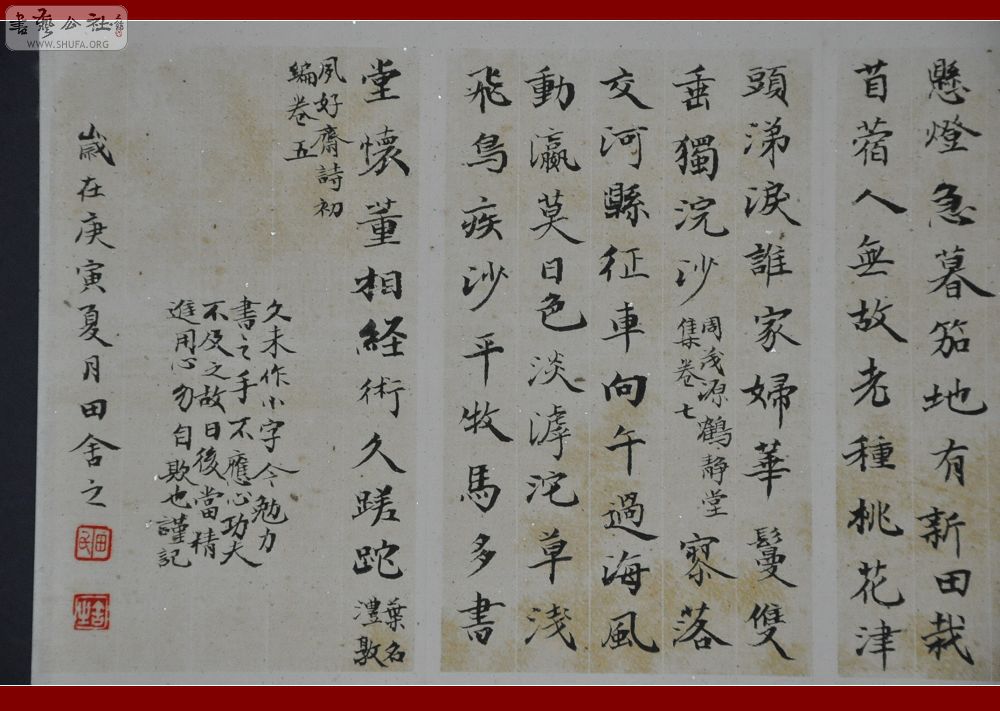 書藝公社
WWW.SHUFA.ORG
懸燈急暮笳地有新田栽
苜蓿人無故老種桃花津
頭涕淚誰家婦華鬘雙
垂獨浣沙
周茂源鶴靜堂
集卷七
寥落
交河縣征車向午過海風
動瀛莫日色淡滹沱草淺
飛鳥疾沙平牧馬多書
堂懷董相経術久蹉跎
葉名
澧敦
夙好齋詩初
編卷五
久未作小字今勉力
書之手不應心功夫
不及之故日後當精
進用心勿自欺也謹記
歲在庚寅夏月田舍之
田
舍之